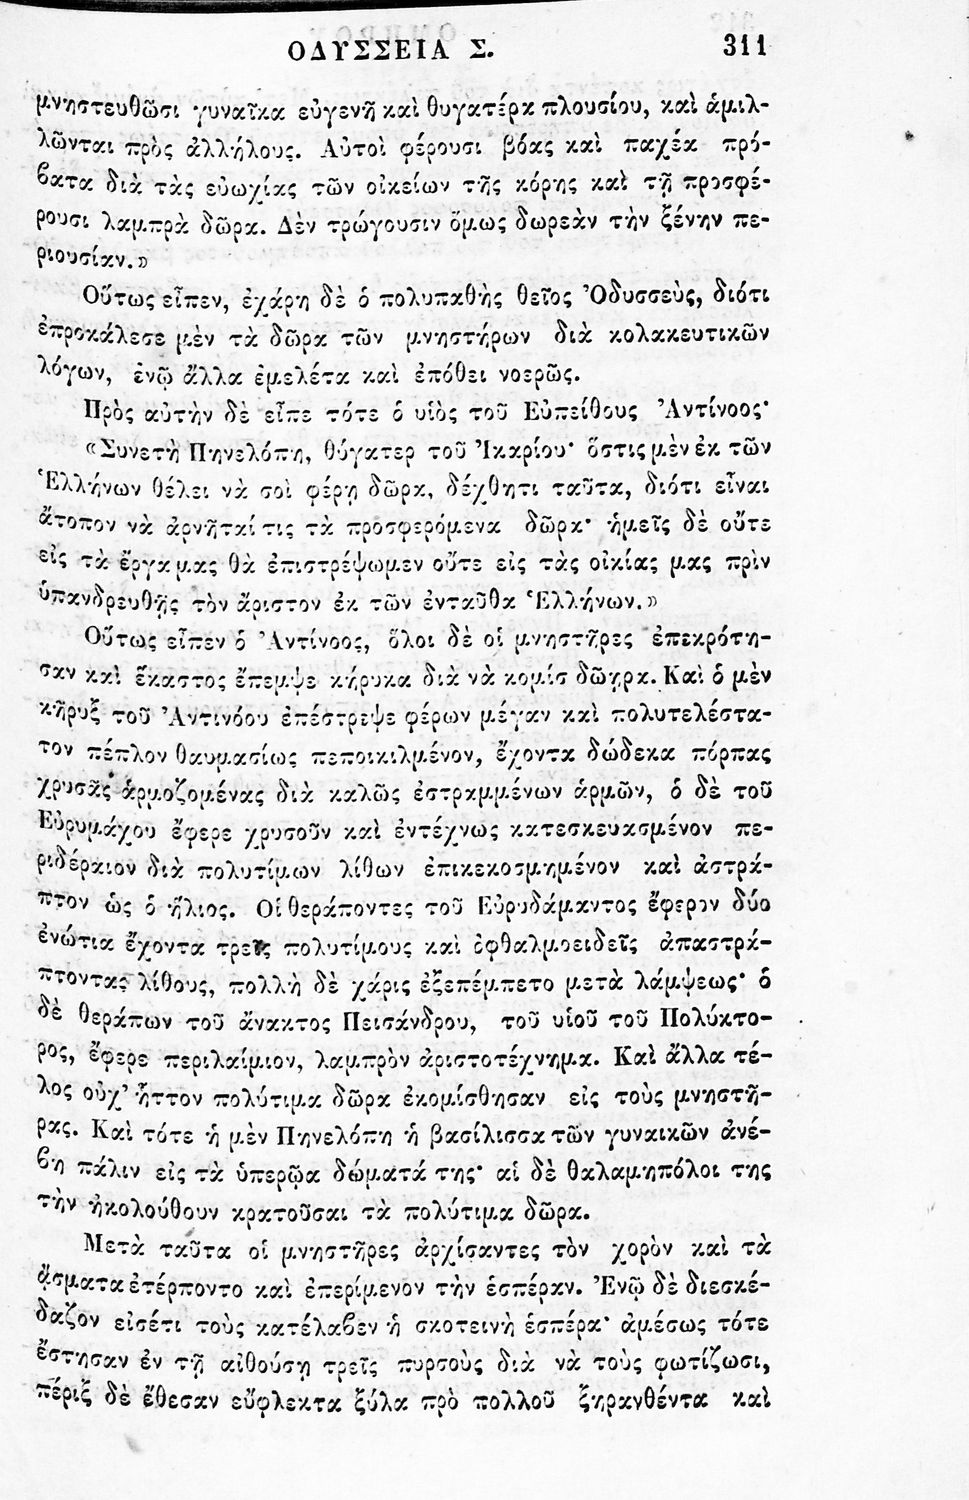 ΟΔΥΣΣΕΙΑ Σ. 311
μνηστευθῶσι γυναῖκα εὐγενῆ καὶ θυγατέρα πλουσίου, καὶ ἁμιλ-
λῶνται πρὸς ἀλλήλους. Αὐτοὶ φέρουσι βόας καὶ παχέα πρό-
βατα διὰ τὰς εὐωχίας τῶν οἰκείων τῆς κόρης καὶ τῇ προσφέ-
ρουσι λαμπρὰ δῶρα. Δὲν τρώγουσιν ὅμως δωρεὰν τὴν ξένην πε-
ριουσίαν.»
Οὕτως εἶπεν, ἐχάρη δὲ ὁ πολυπαθὴς θεῖος Ὀδυσσεὺς, διότι
ἐπροκάλεσε μὲν τὰ δῶρα τῶν μνηστήρων διὰ κολακευτικῶν
λόγων, ἐνῷ ἄλλα ἐμελέτα καὶ ἐπόθει νοερῶς.
Πρὸς αὐτὴν δὲ εἶπε τότε ὁ υἱὸς τοῦ Εὐπείθους Ἀντίνοος·
«Συνετὴ Πηνελόπη, θύγατερ τοῦ Ἰκαρίου· ὅστις μὲν ἐκ τῶν
Ἑλλήνων θέλει νὰ σοὶ φέρῃ δῶρα, δέχθητι ταῦτα, διότι εἶναι
ἄτοπον νὰ ἀρνῆταί τις τὰ προσφερόμενα δῶρα· ἡμεῖς δὲ οὔτε
εἰς τὰ ἔργα μας θὰ ἐπιστρέψωμεν οὔτε εἰς τὰς οἰκίας μας πρὶν
ὑπανδρευθῇς τὸν ἄριστον ἐκ τῶν ἐνταῦθα Ἑλλήνων.»
Οὕτως εἶπεν ὁ Ἀντίνοος, ὅλοι δὲ οἱ μνηστῆρες ἐπεκρότη-
σαν καὶ ἕκαστος ἔπεμψε κήρυκα διὰ νὰ κομίσ δῶῃρα. Καὶ ὁ μὲν
κῆρυξ τοῦ Ἀντινόου ἐπέστρεψε φέρων μέγαν καὶ πολυτελέστα-
τον πέπλον θαυμασίως πεποικιλμένον, ἔχοντα δώδεκα πόρπας
χρυσᾶς ἁρμοζομένας διὰ καλῶς ἐστραμμένων ἁρμῶν, ὁ δὲ τοῦ
Εὐρυμάχου ἔφερε χρυσοῦν καὶ ἐντέχνως κατεσκευασμένον πε-
ριδέραιον διὰ πολυτίμων λίθων ἐπικεκοσμημένον καὶ ἀστρά-
πτον ὡς ὁ ἥλιος. Οἱ θεράποντες τοῦ Εὐρυδάμαντος ἔφερον δύο
ἐνώτια ἔχοντα τρεῖς πολυτίμους καὶ ὀφθαλμοειδεῖς ἀπαστρά-
πτοντας λίθους, πολλὴ δὲ χάρις ἐξεπέμπετο μετὰ λάμψεως· ὁ
δὲ θεράπων τοῦ ἄνακτος Πεισάνδρου, τοῦ υἱοῦ τοῦ Πολύκτο-
ρος, ἔφερε περιλαίμιον, λαμπρὸν ἀριστοτέχνημα. Καὶ ἄλλα τέ-
λος οὐχ’ ἧττον πολύτιμα δῶρα ἐκομίσθησαν εἰς τοὺς μνηστῆ-
ρας. Καὶ τότε ἡ μὲν Πηνελόπη ἡ βασίλισσα τῶν γυναικῶν ἀνέ-
βη πάλιν εἰς τὰ ὑπερῷα δώματά της· αἱ δὲ θαλαμηπόλοι της
τὴν ἠκολούθουν κρατοῦσαι τὰ πολύτιμα δῶρα.
Μετὰ ταῦτα οἱ μνηστῆρες ἀρχίσαντες τὸν χορὸν καὶ τὰ
ᾄσματα ἐτέρποντο καὶ ἐπερίμενον τὴν ἑσπέραν. Ἐνῷ δὲ διεσκέ-
δαζον εἰσέτι τοὺς κατέλαβεν ἡ σκοτεινὴ ἑσπέρα· ἀμέσως τότε
ἔστησαν ἐν τῇ αἰθούσῃ τρεῖς πυρσοὺς διὰ νὰ τοὺς φωτίζωσι,
πέριξ δὲ ἔθεσαν εὔφλεκτα ξύλα πρὸ πολλοῦ ξηρανθέντα καὶ